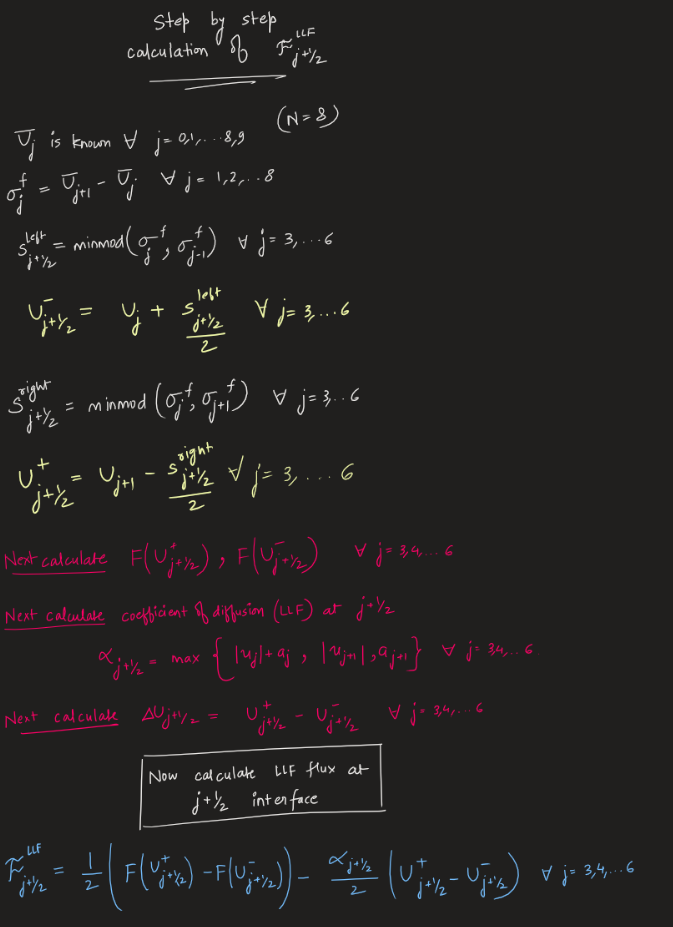 Step by step
calculation of F^{LLF}_{j+1/2}
(N=8)
U̅_j is known ∀ j=0,1,...8,9
σ_j^f = U̅_{j+1} - U̅_j ∀ j=1,2,..8
S^{left}_{j+1/2} = minmod(σ_j^f, σ_{j-1}^f) ∀ j=3,...6
U^-_{j+1/2} = U_j + S^{left}_{j+1/2}/2 ∀ j=3,...6
S^{right}_{j+1/2} = minmod(σ_j^f, σ_{j+1}^f) ∀ j=3,..6
U^+_{j+1/2} = U_{j+1} - S^{right}_{j+1/2}/2 ∀ j=3,....6
Next calculate F(U^+_{j+1/2}), F(U^-_{j+1/2}) ∀ j=3,4,...6
Next calculate coefficient of diffusion (LLF) at j+1/2
α_{j+1/2} = max { |u_j|+a_j, |u_{j+1}|,a_{j+1} } ∀ j=3,4,..6
Next calculate ΔU_{j+1/2} = U^+_{j+1/2} - U^-_{j+1/2} ∀ j=3,4,...6
Now calculate LLF flux at
j+1/2 interface
F^{LLF}_{j+1/2} = 1/2 (F(U^+_{j+1/2}) - F(U^-_{j+1/2})) - α_{j+1/2}/2 (U^+_{j+1/2} - U^-_{j+1/2}) ∀ j=3,4,...6